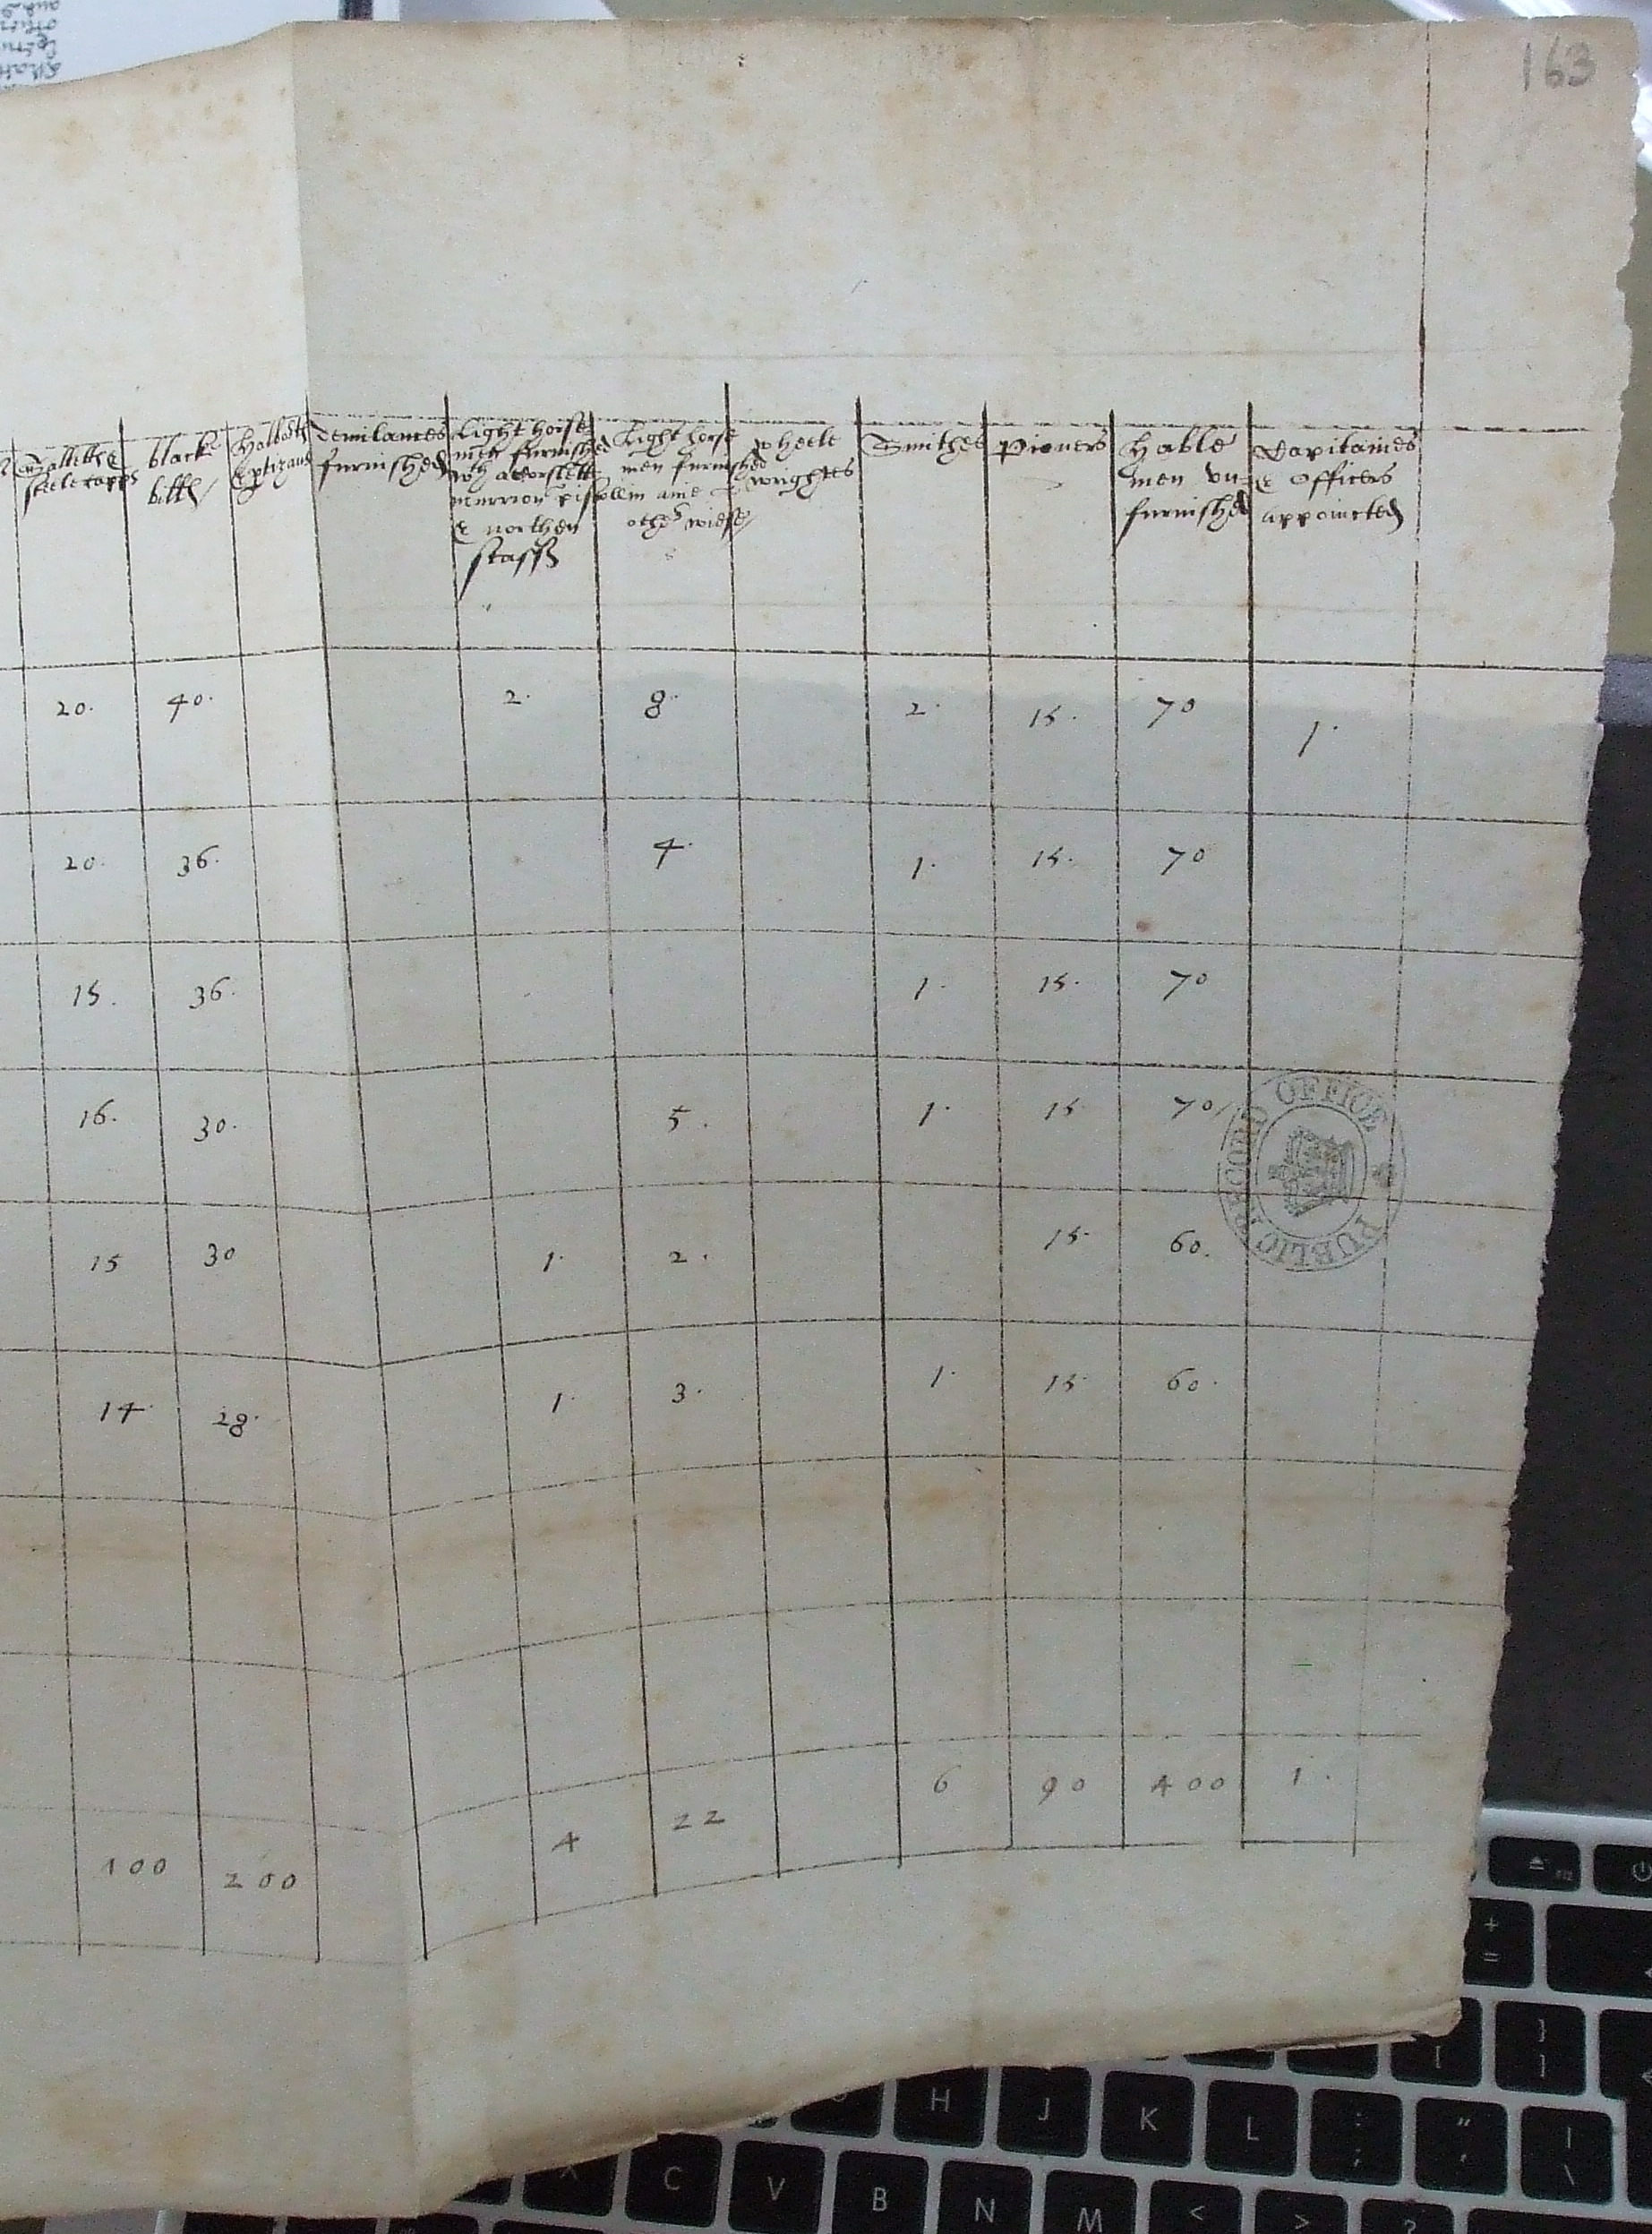 163
Sallettes & steele capps | blacke billes | Halberdes & ptizans | demilances furnished | Light horse men furnished wth a Corslett murrion pistoll & northen staff | Light horse men furnished in anie othr wiese | wheele wrightes | Smithes | Pioners | Hable men vnfurnished | Capitaines & Officers appointed
20. | 40. | 2. | 8. | 2. | 15. | 70 | 1.
20. | 36. | 4. | 1. | 15. | 70
15. | 36. | 1. | 15. | 70
16. | 30. | 5. | 1. | 15 | 70
15 | 30 | 1. | 2. | 15. | 60.
14. | 28. | 1. | 3. | 1. | 15. | 60.
100 | 200 | 4 | 22 | 6 | 90 | 400 | 1.
PUBLIC RECORD OFFICE
+
=
}
]
[
H
J
K
L
:
;
"
'
|
\
X
C
V
B
N
M
<
>
?